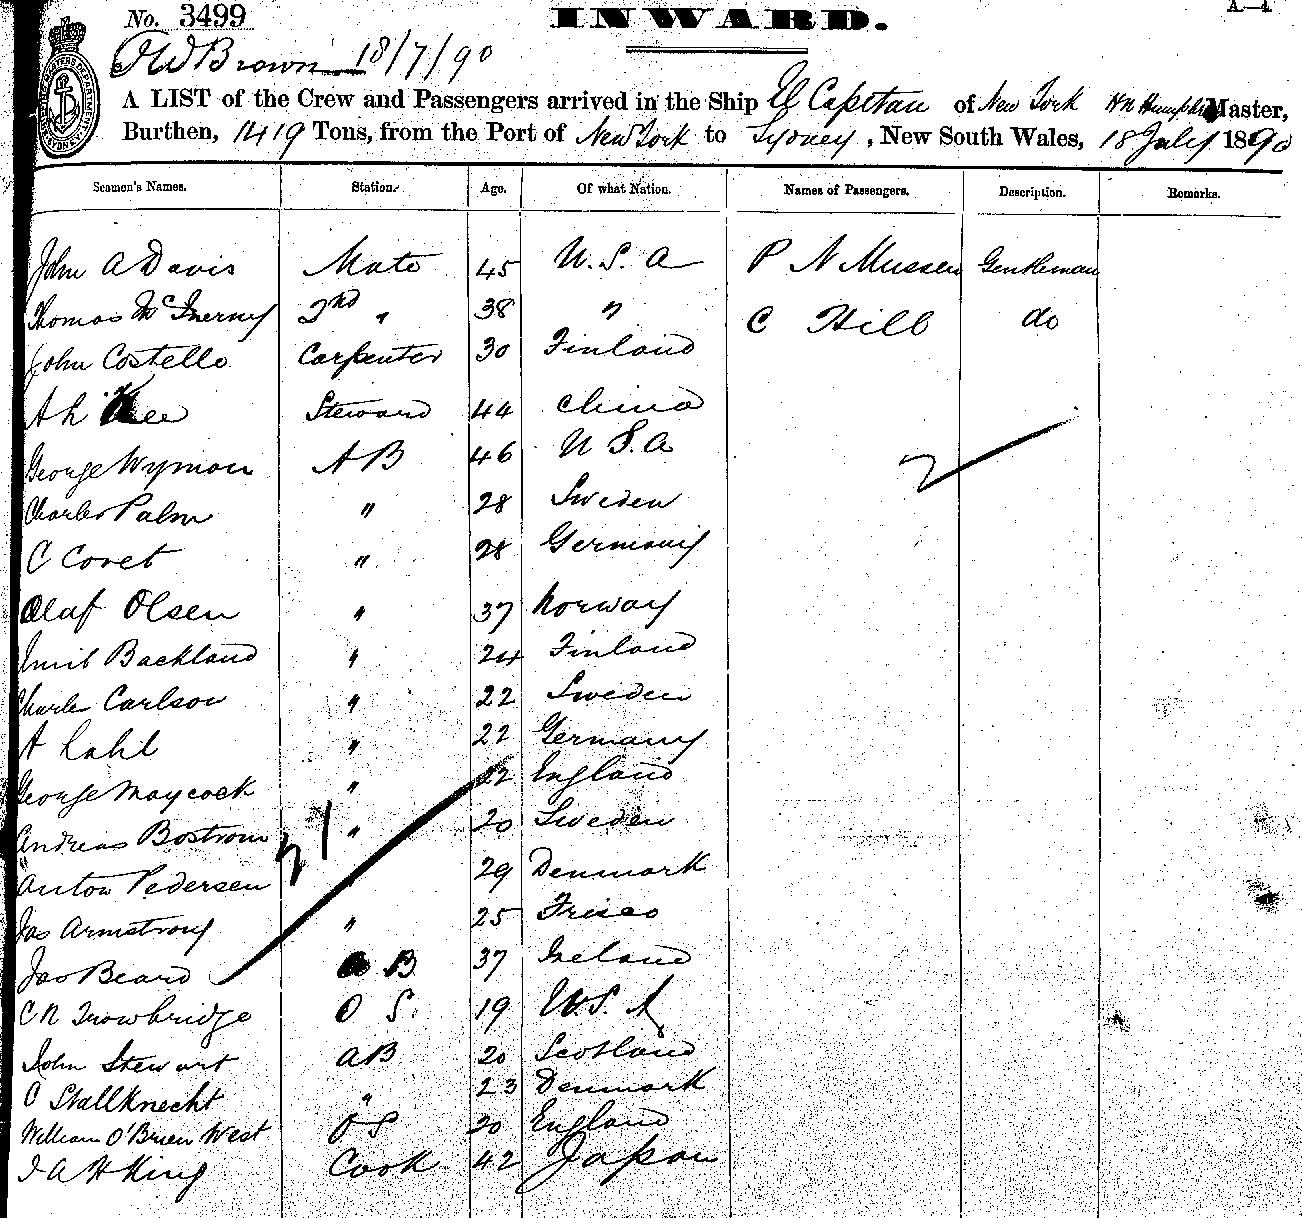 No. 3499
INWARD.
A—4
JW Brown 18/7/90
A LIST of the Crew and Passengers arrived in the Ship El Capitan of New York Master,
Burthen, 1419 Tons, from the Port of New York to Sydney, New South Wales, 18 July 1890
Seamen's Names. Station. Age. Of what Nation. Names of Passengers. Description. Remarks.
John A Davis Mate 45 U.S.A P N Mussen Gentleman
Thomas McInerney 2nd " 38 " C Hill do
John Costello Carpenter 30 Finland
Ah Kee Steward 44 China
George Wyman AB 46 U S.A
2
Charles Palm " 28 Sweden
C Covet " 28 Germany
Olaf Olsen " 37 Norway
Emil Backland " 24 Finland
Charles Carlson " 22 Sweden
A Lahl " 22 Germany
George Maycock " 22 England
Andreas Bostrom " 20 Sweden
21
Anton Pedersen " 29 Denmark
Jas Armstrong " 25 Frisco
Jas Beard A B 37 Ireland
C N Trowbridge O S. 19 U.S.A
John Stewart AB 20 Scotland
C Stallknecht " 23 Denmark
William O'Brien West OS 20 England
I A H King Cook 42 Japan